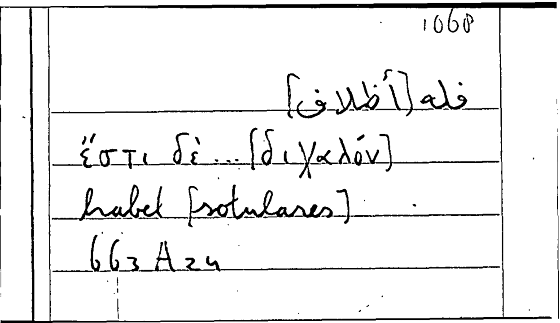 1068
فله [أظلاف]
ἔστι δὲ ... [διχαλόν]
habet [sotulares]
663 A 24